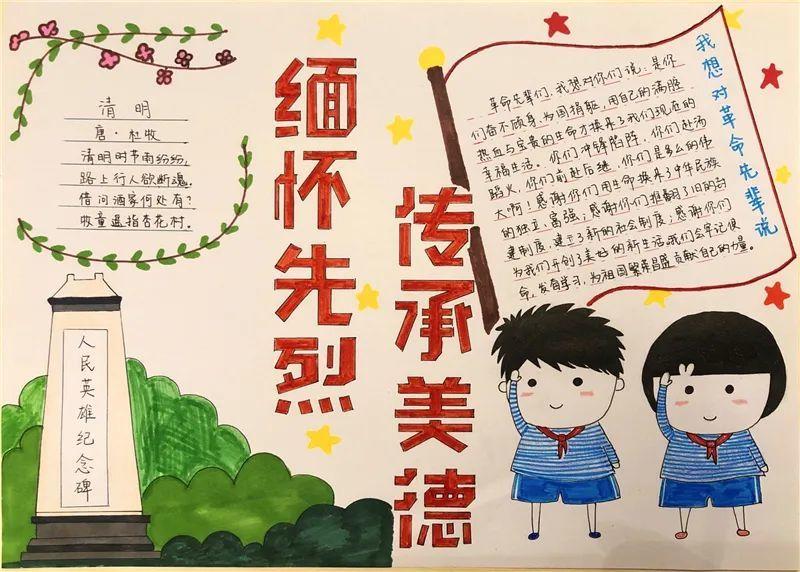 清明
唐·杜牧
清明时节雨纷纷，
路上行人欲断魂。
借问酒家何处有？
牧童遥指杏花村。
人民英雄纪念碑
缅怀先烈
传承美德
我想对革命先辈说
革命先辈们，我想对你们说：是你
们奋不顾身，为国捐躯，用自己的满腔
热血与宝贵的生命才换来了我们现在的
幸福生活。你们冲锋陷阵，你们赴汤
蹈火，你们前赴后继，你们是多么的伟
大啊！感谢你们用生命换来了中华民族
的独立、富强；感谢你们推翻了旧的封
建制度，建立了新的社会制度；感谢你们
为我们开创了美好的新生活。我们会牢记使
命，发奋学习，为祖国繁荣昌盛贡献自己的力量。